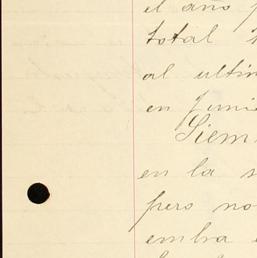 el año
total
al ultim
en Junio
Siem
en la
pero no
embra